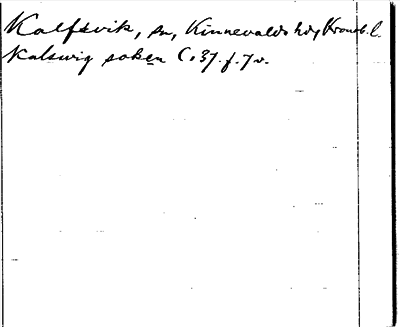 Kalfsvik, sn, Kinnevalds hd, Kronob. l.
Kalswig soken C. 37. f. 7 v.